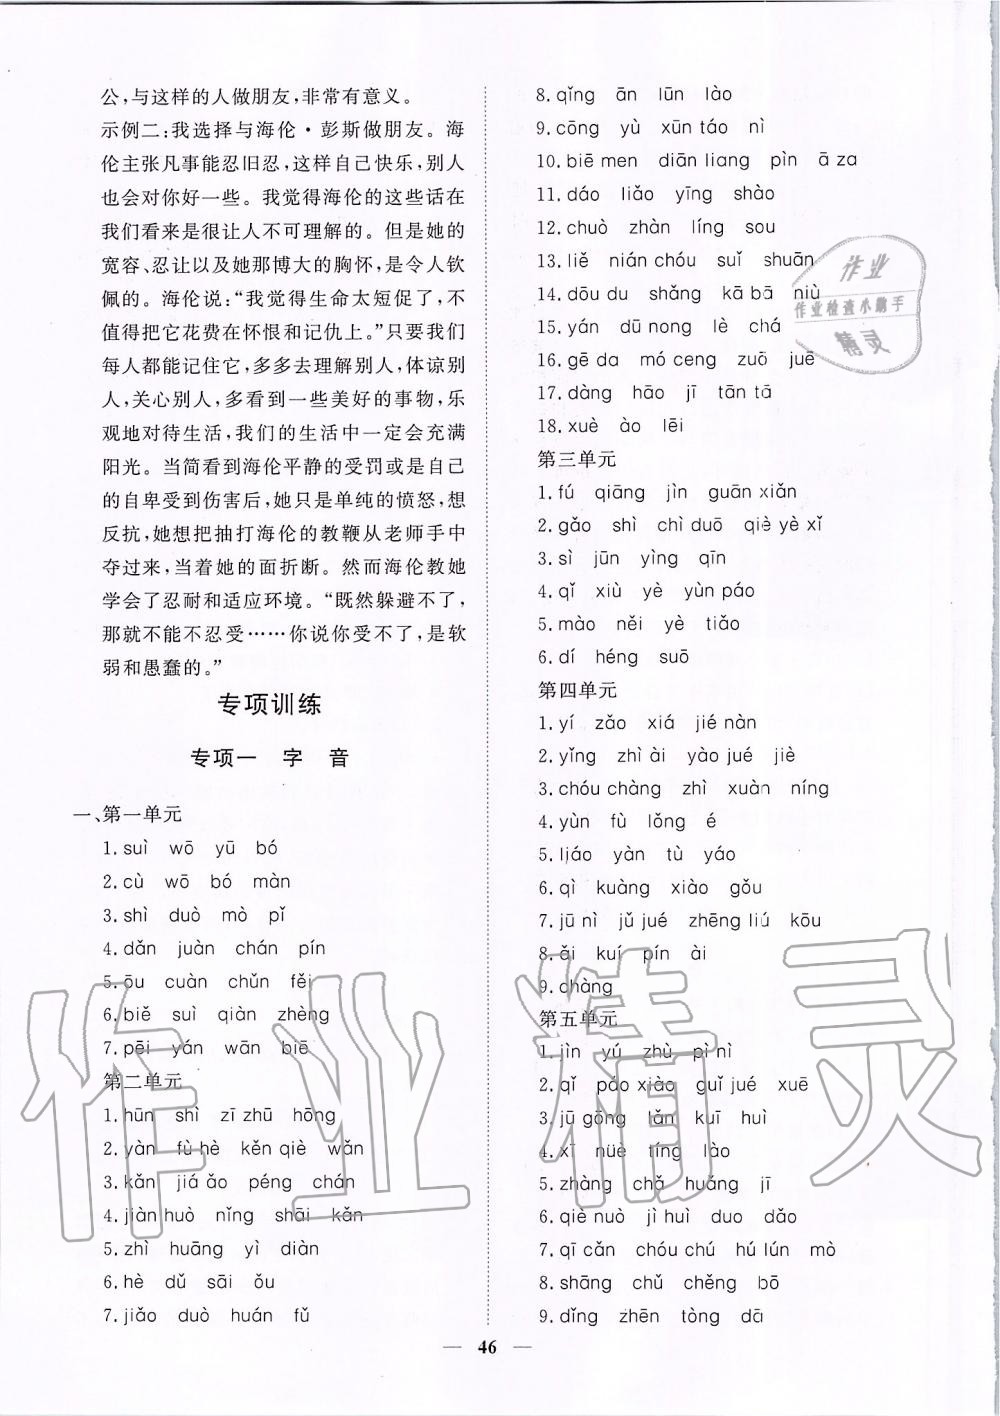 公,与这样的人做朋友,非常有意义。
示例二:我选择与海伦·彭斯做朋友。海
伦主张凡事能忍旧忍,这样自己快乐,别人
也会对你好一些。我觉得海伦的这些话在
我们看来是很让人不可理解的。但是她的
宽容、忍让以及她那博大的胸怀,是令人钦
佩的。海伦说:“我觉得生命太短促了,不
值得把它花费在怀恨和记仇上。”只要我们
每人都能记住它,多多去理解别人,体谅别
人,关心别人,多看到一些美好的事物,乐
观地对待生活,我们的生活中一定会充满
阳光。当简看到海伦平静的受罚或是自己
的自卑受到伤害后,她只是单纯的愤怒,想
反抗,她想把抽打海伦的教鞭从老师手中
夺过来,当着她的面折断。然而海伦教她
学会了忍耐和适应环境。“既然躲避不了,
那就不能不忍受……你说你受不了,是软
弱和愚蠢的。”
专项训练
专项一 字 音
一、第一单元
1. suì wō yū bó
2. cù wō bó màn
3. shì duò mò pǐ
4. dǎn juàn chán pín
5. ōu cuàn chǔn fěi
6. biě suì qiàn zhèng
7. pēi yán wān biē
第二单元
1. hūn shì zī zhū hōng
2. yàn fù hè kěn qiè wǎn
3. kǎn jiá ǎo péng chán
4. jiàn huò nǐng shāi kǎn
5. zhì huāng yì diàn
6. hè dǔ sāi ǒu
7. jiǎo duò huán fǔ
8. qǐng ān lūn lào
9. cōng yù xūn táo nì
10. biē men diān liang pìn ā za
11. dáo liǎo yīng shào
12. chuò zhàn líng sou
13. liě nián chóu suǐ shuān
14. dōu du shǎng kā bā niù
15. yán dū nong lè chá
16. gē da mó ceng zuō juē
17. dàng hāo jī tān tā
18. xuè ào lēi
第三单元
1. fú qiāng jìn guān xiǎn
2. gǎo shì chì duō qiè yè xǐ
3. sì jūn yìng qīn
4. qǐ xiù yè yùn páo
5. mào něi yè tiǎo
6. dí héng suō
第四单元
1. yí zǎo xiá jié nàn
2. yǐng zhì ài yào jué jiè
3. chóu chàng zhì xuàn níng
4. yùn fù lǒng é
5. liáo yàn tù yáo
6. qì kuàng xiào gǒu
7. jū nì jǔ jué zhēng liú kōu
8. ǎi kuí pín ài
9. chàng
第五单元
1. jìn yú zhù pì nì
2. qǐ páo xiào guǐ jué xuē
3. jū gōng lǎn kuī huì
4. xǐ nüè tíng lào
5. zhàng chǎ huǎng jī
6. qiè nuò jì huì duo dǎo
7. qī cǎn chóu chú hú lún mò
8. shāng chǔ chěng bō
9. dǐng zhēn tòng dā
46
作业
作业检查小助手
精灵
作业精灵